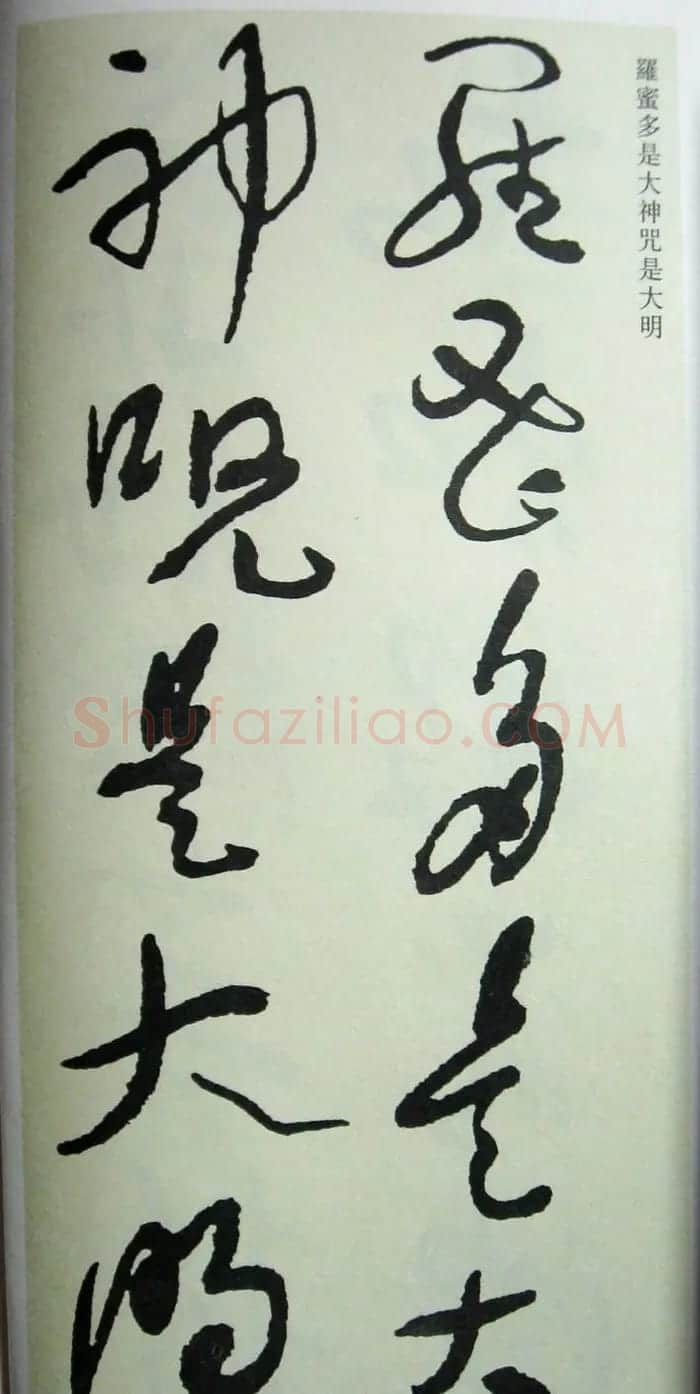 羅蜜多是大神咒是大明
羅蜜多是大
神咒是大明
Shufaziliao.COM